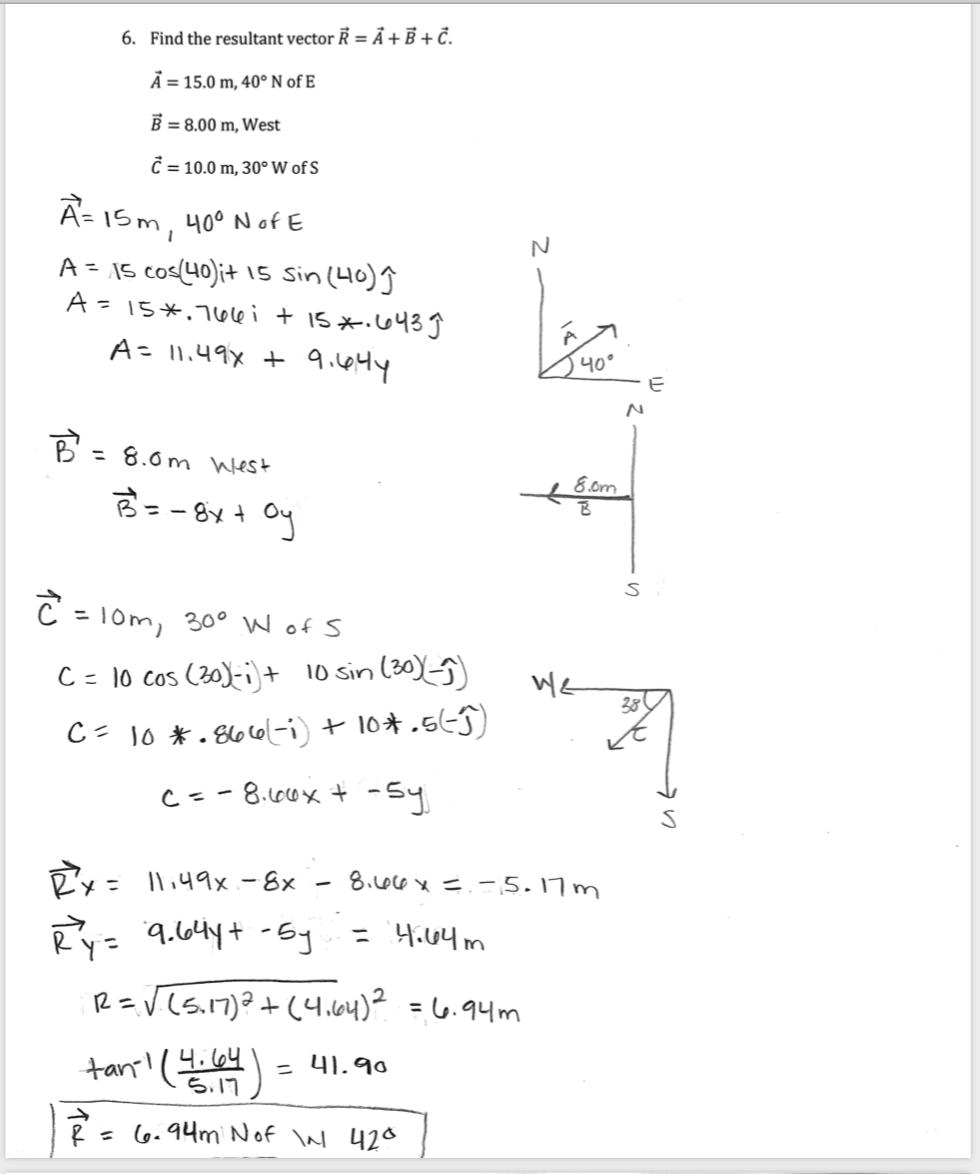 6. Find the resultant vector R⃗ = A⃗ + B⃗ + C⃗.
A⃗ = 15.0 m, 40° N of E
B⃗ = 8.00 m, West
C⃗ = 10.0 m, 30° W of S
A⃗ = 15m, 40° N of E
A = 15 cos(40)i + 15 sin(40)ĵ
A = 15*.766i + 15*.643ĵ
A = 11.49x + 9.64y
N
A
40°
E
B⃗ = 8.0m West
B⃗ = -8x + 0y
N
8.0m
B
S
C⃗ = 10m, 30° W of S
C = 10 cos(30)(-i) + 10 sin(30)(-ĵ)
C = 10 * .866(-i) + 10* .5(-ĵ)
C = -8.66x + -5y
W
C
S
R⃗x = 11.49x - 8x - 8.66x = -5.17m
R⃗y = 9.64y + -5y = 4.64m
R = √(5.17)² + (4.64)² = 6.94m
tan⁻¹(4.64/5.17) = 41.90
R⃗ = 6.94m N of W 42°